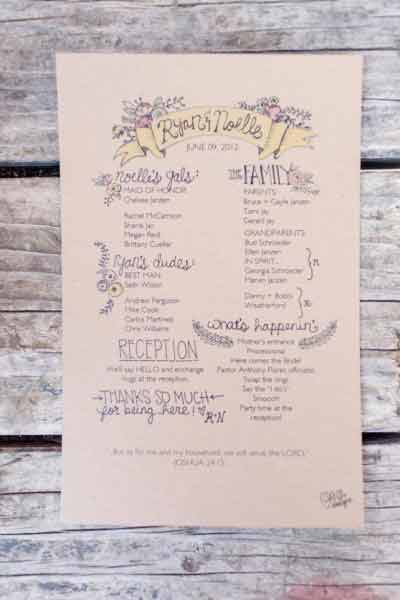 Ryan & Noelle
JUNE 09, 2012
Noelle's gals:
MAID OF HONOR:
Chelsea Jansen
Rachel McCarrison
Sharla Jay
Megan Reid
Brittany Cuellar
Ryan's dudes:
BEST MAN:
Seth Wilson
Andrew Ferguson
Mike Cook
Carlos Martinez
Chris Williams
RECEPTION
We'll say HELLO and exchange
rings at the reception.
THANKS SO MUCH
for being here!
R+N
THE FAMILY
PARENTS:
Bruce + Gayle Jansen
Tami Jay
Gerald Jay
GRANDPARENTS:
Bud Schroeder
Ellen Janzen
IN SPIRIT...
Georgia Schroeder
Marvin Janzen
Danny + Bobbi
Weatherford
what's happenin'
Mother's entrance
Processional
Here comes the Bride!
Pastor Anthony Flores officiates
Swap the rings
Say the "I do's"
Smooch
Party time at the
reception!
But as for me and my household, we will serve the LORD.
JOSHUA 24:15
designs